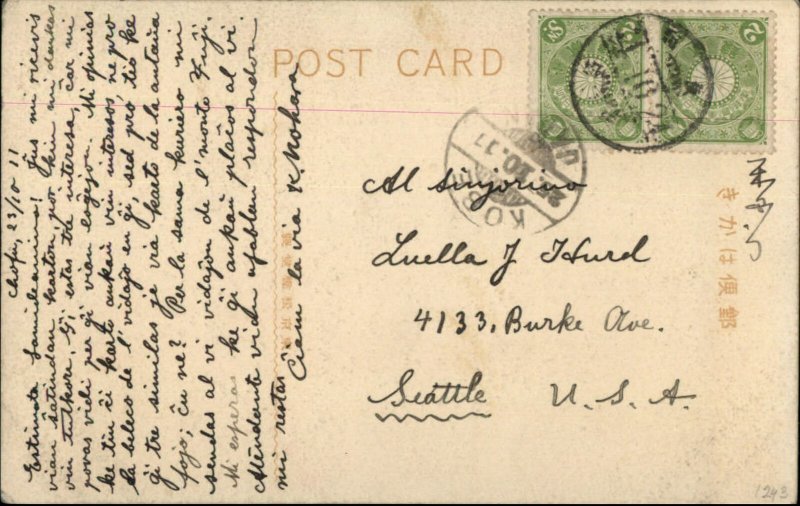 POST CARD
きかは便郵
KOBE
25.10.11
Chofu, 23/10 11
Estimata Samideanino! Ĵus mi ricevis
vian ŝatindan karton, por kiun mi dankas
vin tutkore. Ĝi estas tre interesa, ĉar mi
povas vidi per ĝi vian loĝejon. Mi opinias
ke tiu ĉi karto ankaŭ vin interesos, ne pro
la beleco de l'vidaĵo en ĝi, sed pro tio ke
ĝi tre similas je via karto de la antaŭa
fojo; ĉu ne? Per la sama kuriero mi
sendas al vi vidaĵon de l'monto Fuji.
Mi esperas ke ĝi ankaŭ plaĉos al vi.
Atendante vian afablan respondon
mi restas
Ciem la via K Nohara
Al sinjorino
Luella J Hurd
4133, Burke Ave.
Seattle U. S. A.
1243